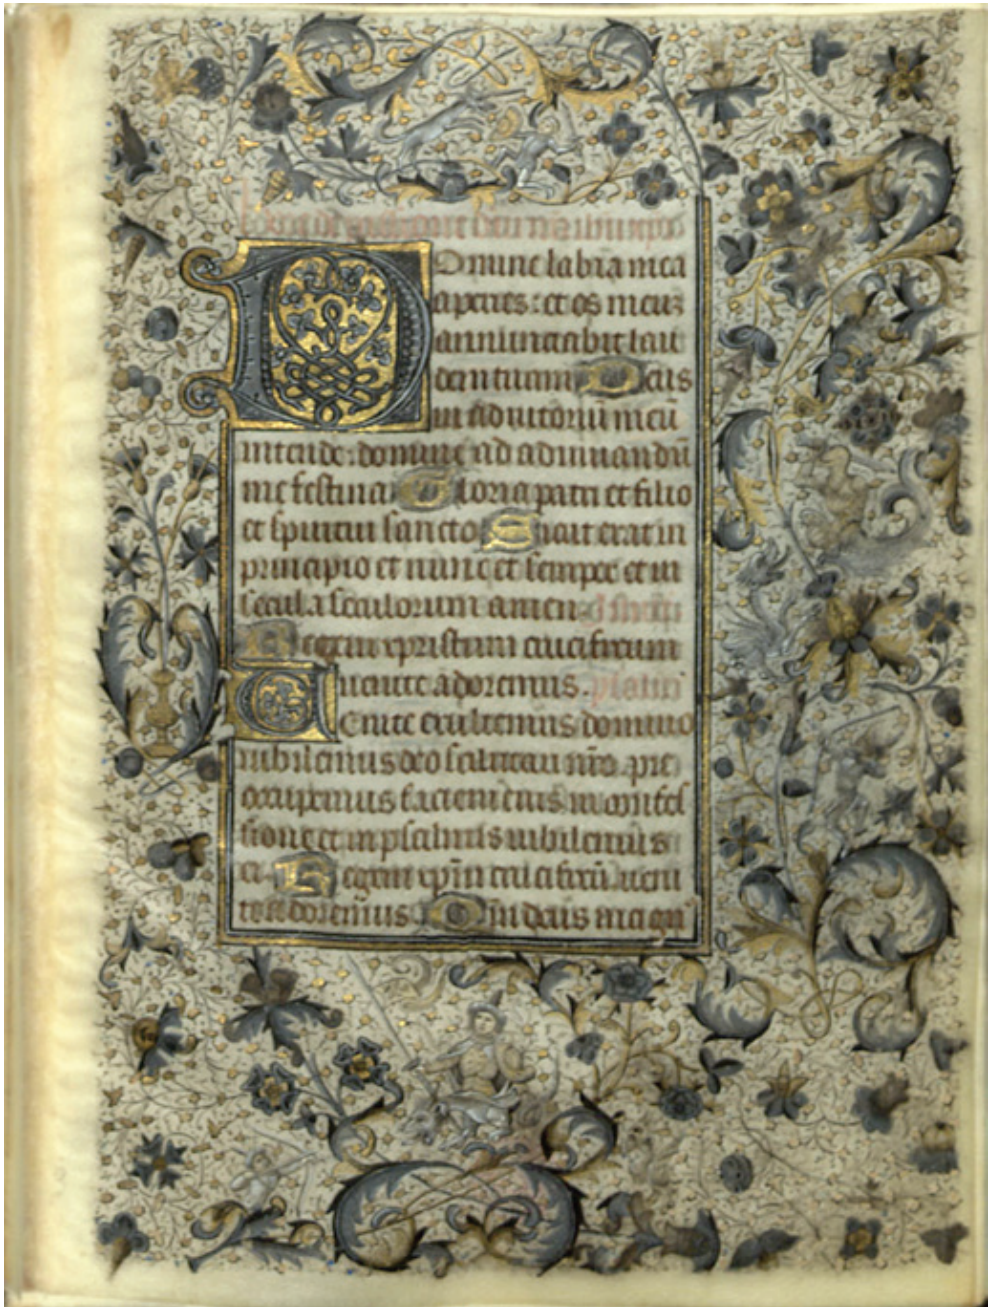 Domine labia mea
aperies : et os meuz
annunciabit lau
dem tuam Deus
in adiutoriū meū
intende : domine ad adiuuandū
me festina Gloria patri et filio
et spiritui sancto Sicut erat in
principio et nunc et semper et in
secula seculorum amen
Regem xpristum crucifixum
uenite adoremus. psalm
Uenite exultemus domino
iubilemus deo salutari nr̄o. pre
occupemus faciem eius in confes
sione et in psalmis iubilemus
ei. Regem xpm̄ crucifixū ueni
te adoremus. Qm̄ deus magn